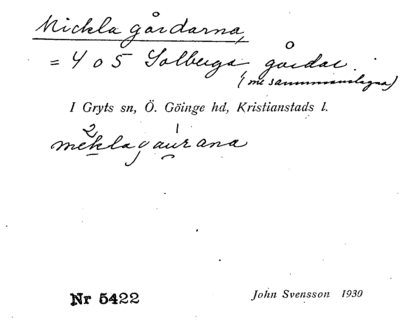 Mickla gårdarna,
= 4 o 5 Solberga gårdar
(nu sammanslagna)
I Gryts sn, Ö. Göinge hd, Kristianstads l.
Nr 5422
John Svensson 1930